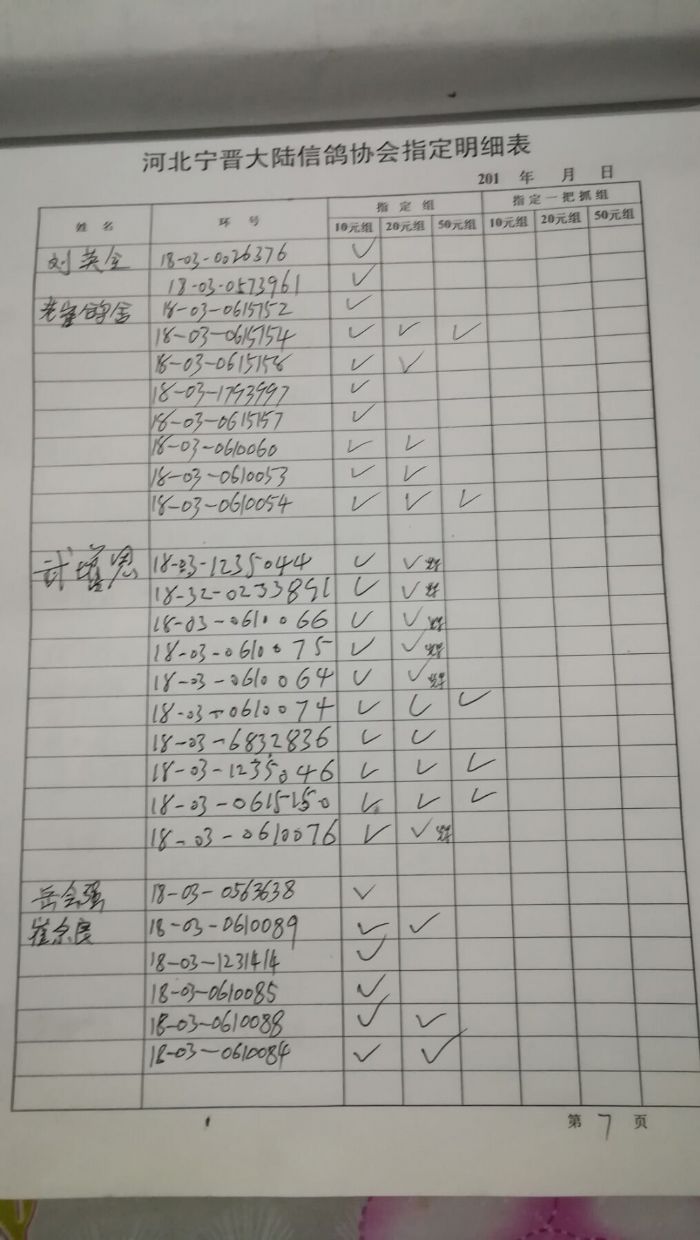 河北宁晋大陆信鸽协会指定明细表
201 年 月 日
姓名 环号 指定组 指定一把抓组
10元组 20元组 50元组 10元组 20元组 50元组
刘英全 18-03-0026376 ✓
18-03-0573961 ✓
老崔鸽舍 18-03-0615752 ✓
18-03-0615754 ✓ ✓ ✓
18-03-0615158 ✓ ✓
18-03-1793997 ✓
18-03-0615157 ✓
18-03-0610060 ✓ ✓
18-03-0610053 ✓ ✓
18-03-0610054 ✓ ✓ ✓
18-03-1235044 ✓ ✓
18-32-0233891 ✓ ✓
18-03-0610066 ✓ ✓
18-03-0610075 ✓ ✓
18-03-0610064 ✓ ✓
18-03-0610074 ✓ ✓ ✓
18-03-6832836 ✓ ✓
18-03-1235046 ✓ ✓ ✓
18-03-0615150 ✓ ✓ ✓
18-03-0610076 ✓ ✓
岳会强 18-03-0563638 ✓
崔京良 18-03-0610089 ✓ ✓
18-03-1231414 ✓
18-03-0610085 ✓
18-03-0610088 ✓ ✓
18-03-0610084 ✓ ✓
第 7 页